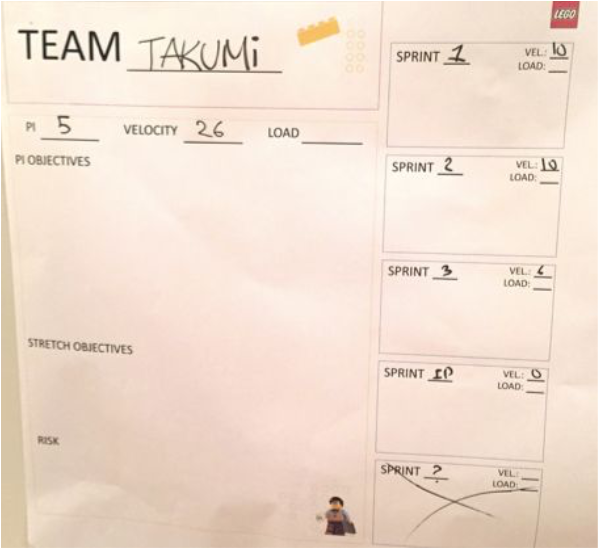 LEGO
TEAM TAKUMi
PI 5 VELOCITY 26 LOAD
PI OBJECTIVES
STRETCH OBJECTIVES
RISK
SPRINT 1 VEL.: 10
LOAD:
SPRINT 2 VEL.: 10
LOAD:
SPRINT 3 VEL.: 6
LOAD:
SPRINT IP VEL.: 0
LOAD:
SPRINT ? VEL.:
LOAD: